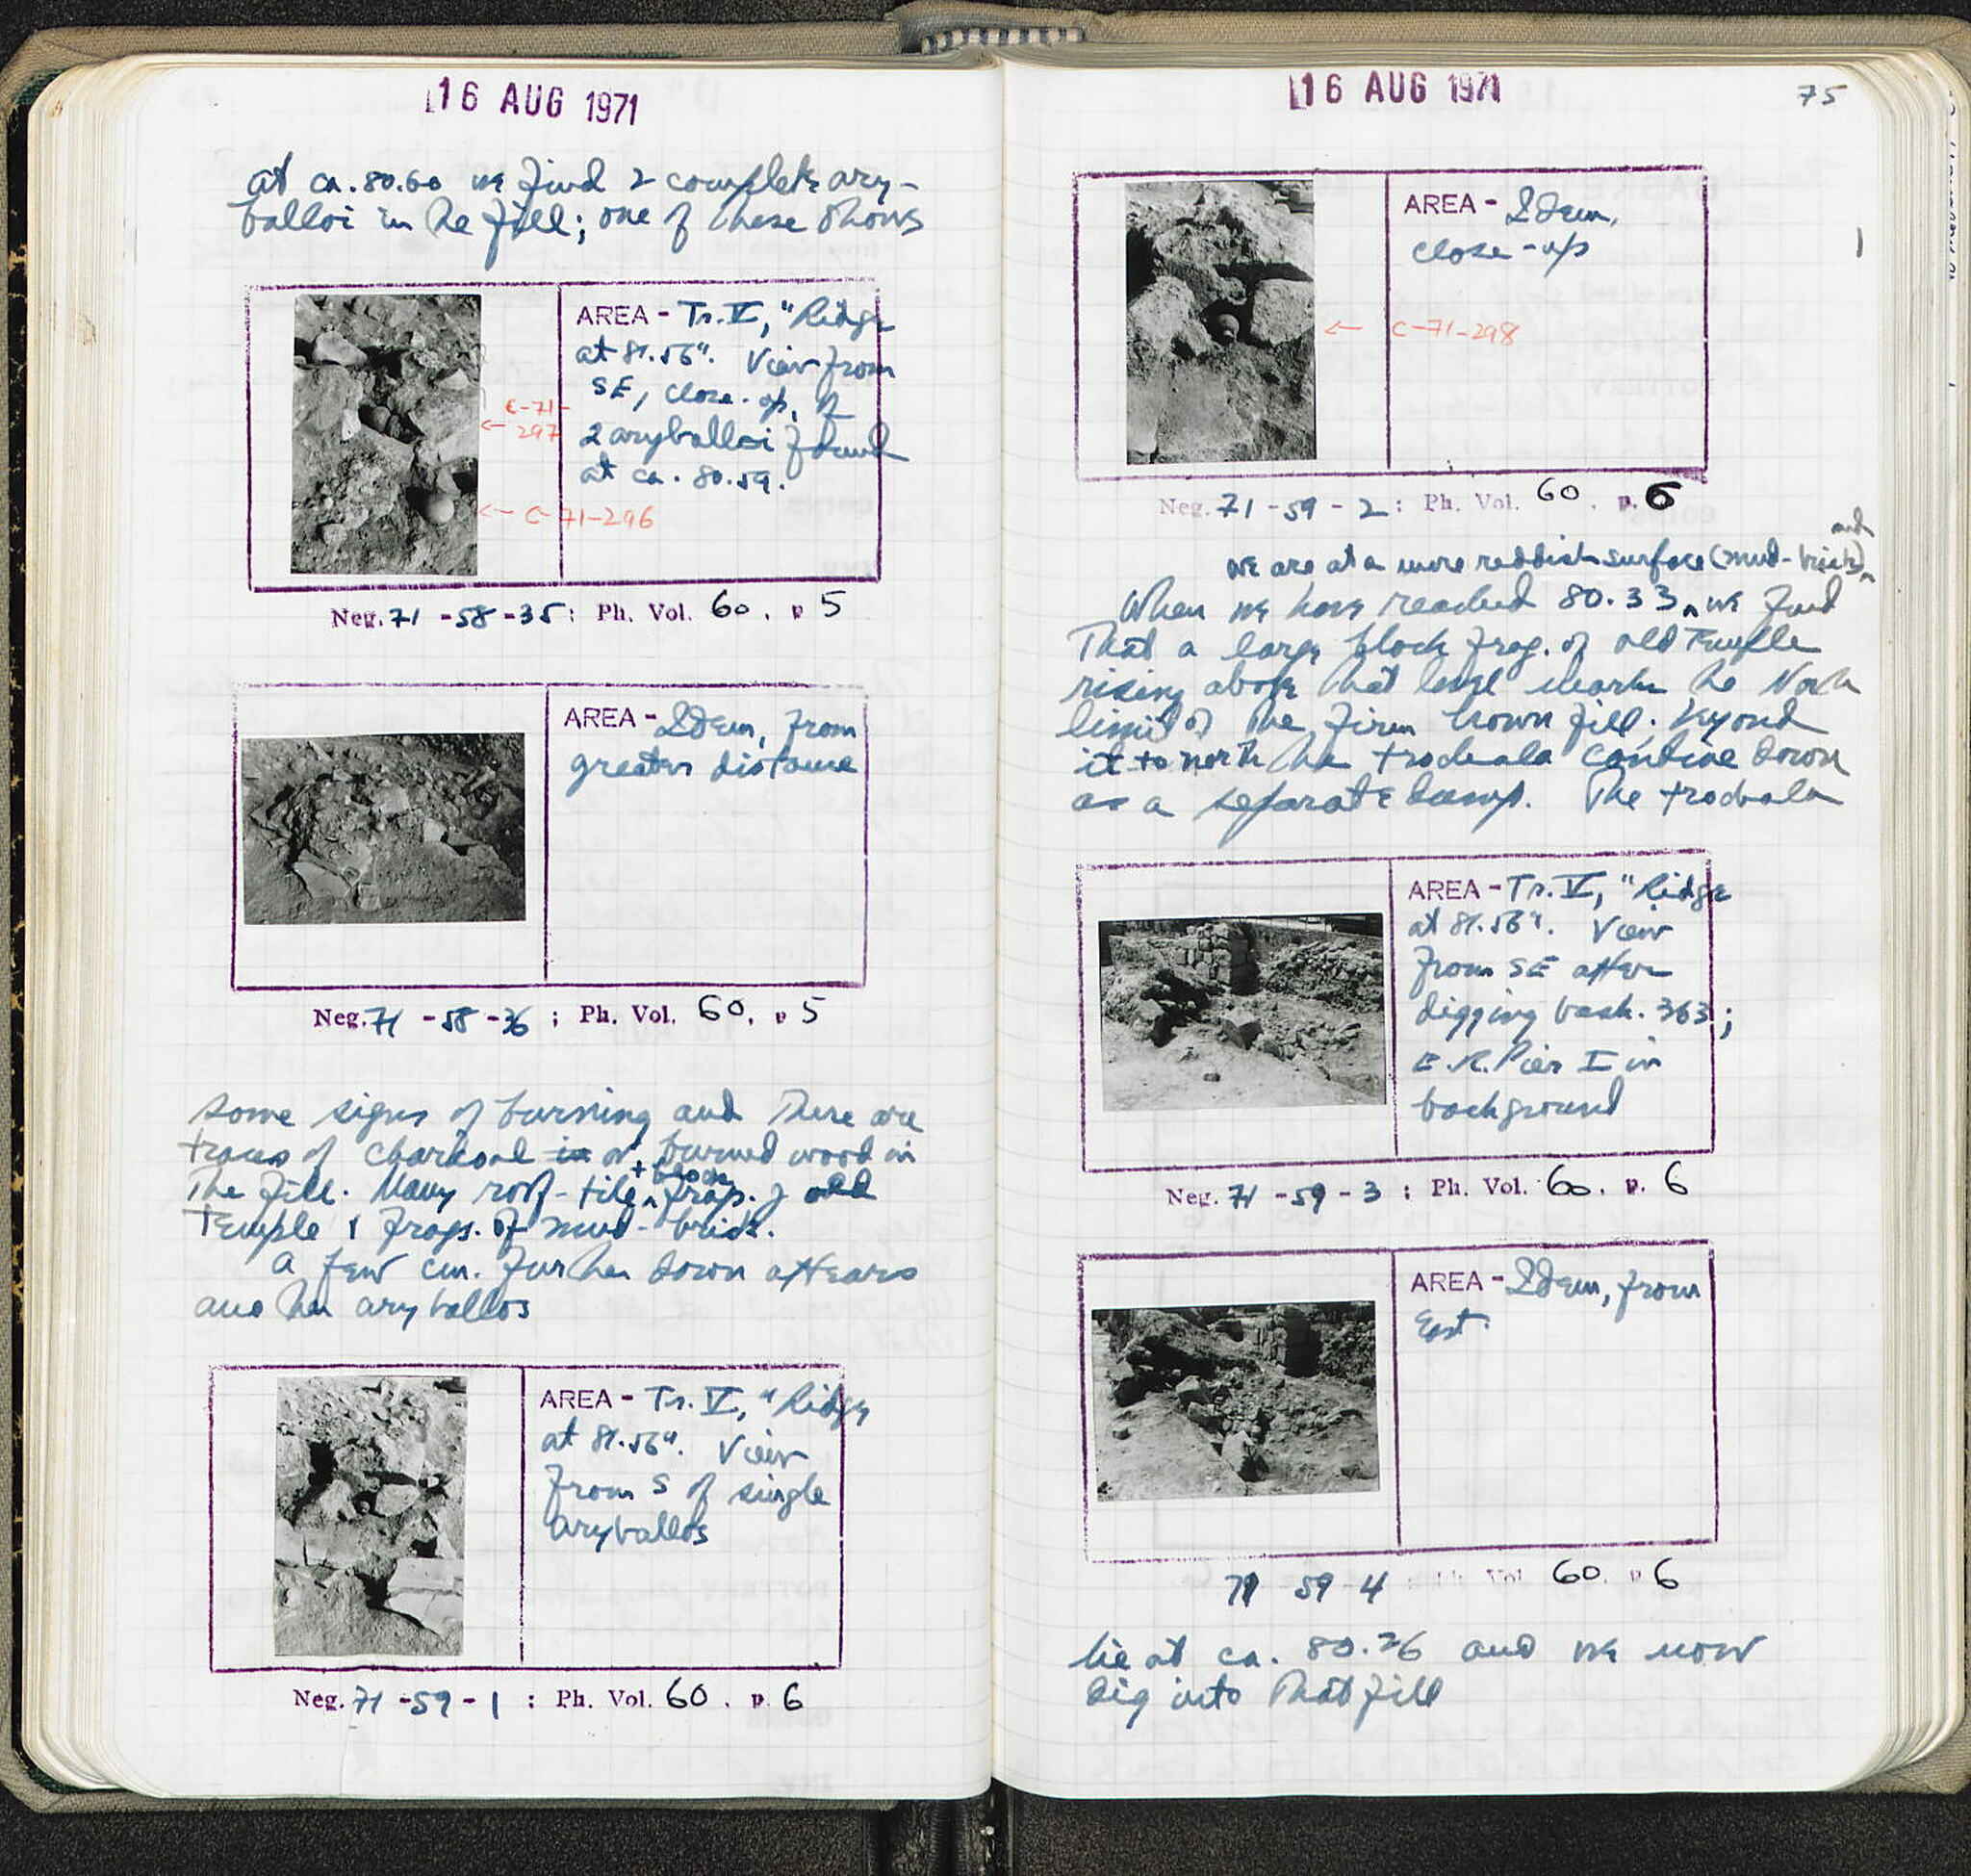 16 AUG 1971
at ca. 80.60 we find 2 complete ary-
balloi in the fill; one of these shows
AREA - Tr. V, "Ridge
at 81.56". View from
SE, close-up, of
2 aryballoi found
at ca. 80.59.
C-71-
← 297
← C-71-296
Neg. 71-58-35; Ph. Vol. 60, p 5
AREA - Idem, from
greater distance
Neg. 71-58-36; Ph. Vol. 60, p 5
some signs of burning and there are
traces of charcoal in or burned wood in
+ block
The fill. Many roof-tile frags. of old
Temple & frags. of mud-brick.
A few cm. further down appears
another aryballos
AREA - Tr. V, "Ridge
at 81.56". View
from S of single
aryballos
Neg. 71-59-1; Ph. Vol. 60, p. 6
16 AUG 1971
75
AREA - Idem,
close-up
← C-71-298
Neg. 71-59-2; Ph. Vol. 60, p. 6
and
we are at a more reddish surface (mud-brick)
When we have reached 80.33 we find
That a large block frag. of old Temple
rising above that level marks the North
limit of the firm brown fill; beyond
it to north the trochala continue down
as a separate dump. The trochala
AREA - Tr. V, "Ridge
at 81.56". View
from SE after
digging bask. 363;
E.R. Pier I in
background
Neg. 71-59-3; Ph. Vol. 60, p. 6
AREA - Idem, from
East.
71 59-4 Vol. 60, p 6
lie at ca. 80.26 and we now
dig into that fill